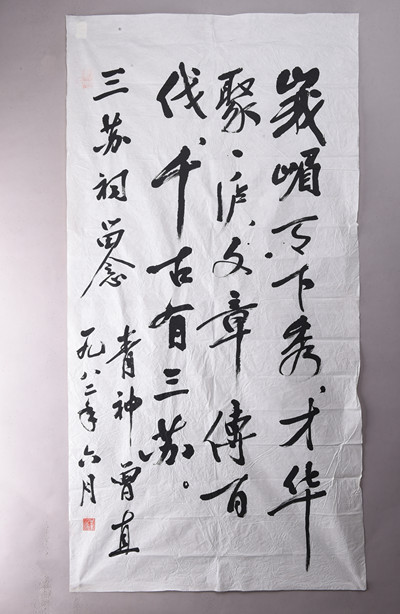 峩嵋天下秀、才华
聚、文章傳百
代、千古有三苏。
三苏祠留念
青神曾直
一九八二年六月